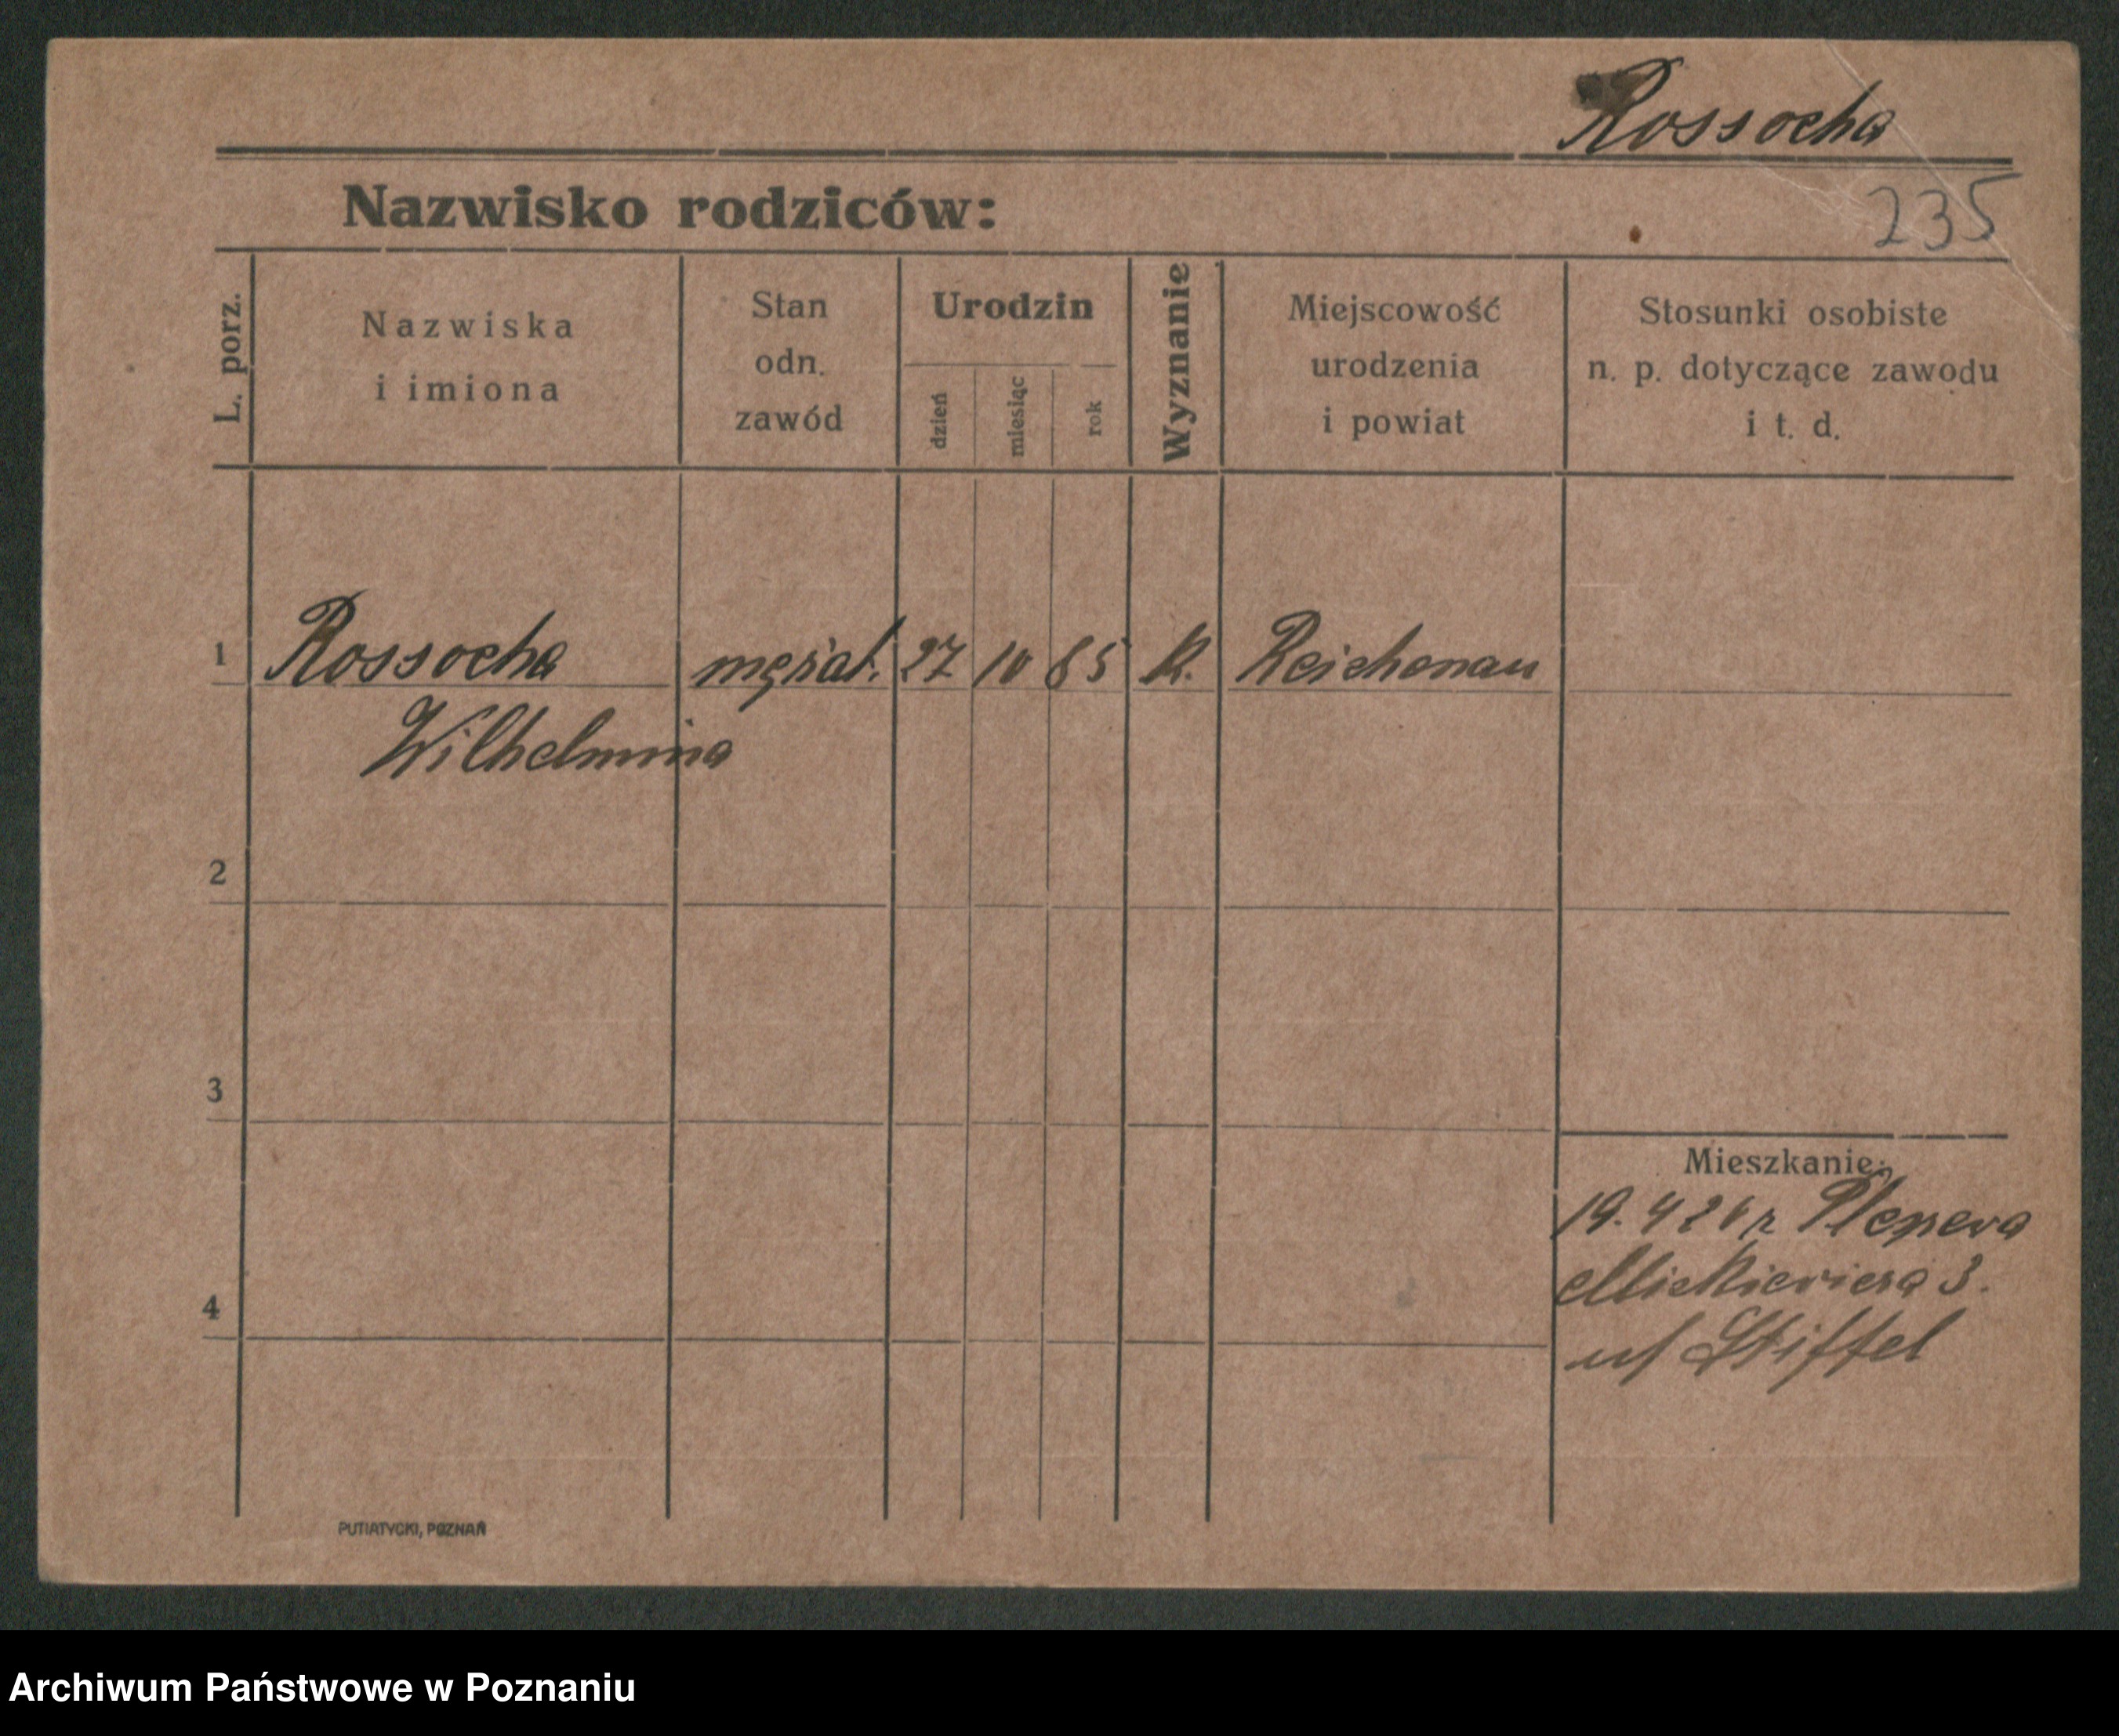 Rossocha
Nazwisko rodziców:
235
L. porz.
Nazwiska
i imiona
Stan
odn.
zawód
Urodzin
dzień
miesiąc
rok
Wyznanie
Miejscowość
urodzenia
i powiat
Stosunki osobiste
n. p. dotyczące zawodu
i t. d.
1 Rossocha mężat. 27 10 85 K. Reichenau
Wilhelmina
2
3
Mieszkanie:
19. 4 26 r.
Mickiewicza 3.
4
Stiffel
PUTIATYCKI, POZNAŃ
Archiwum Państwowe w Poznaniu